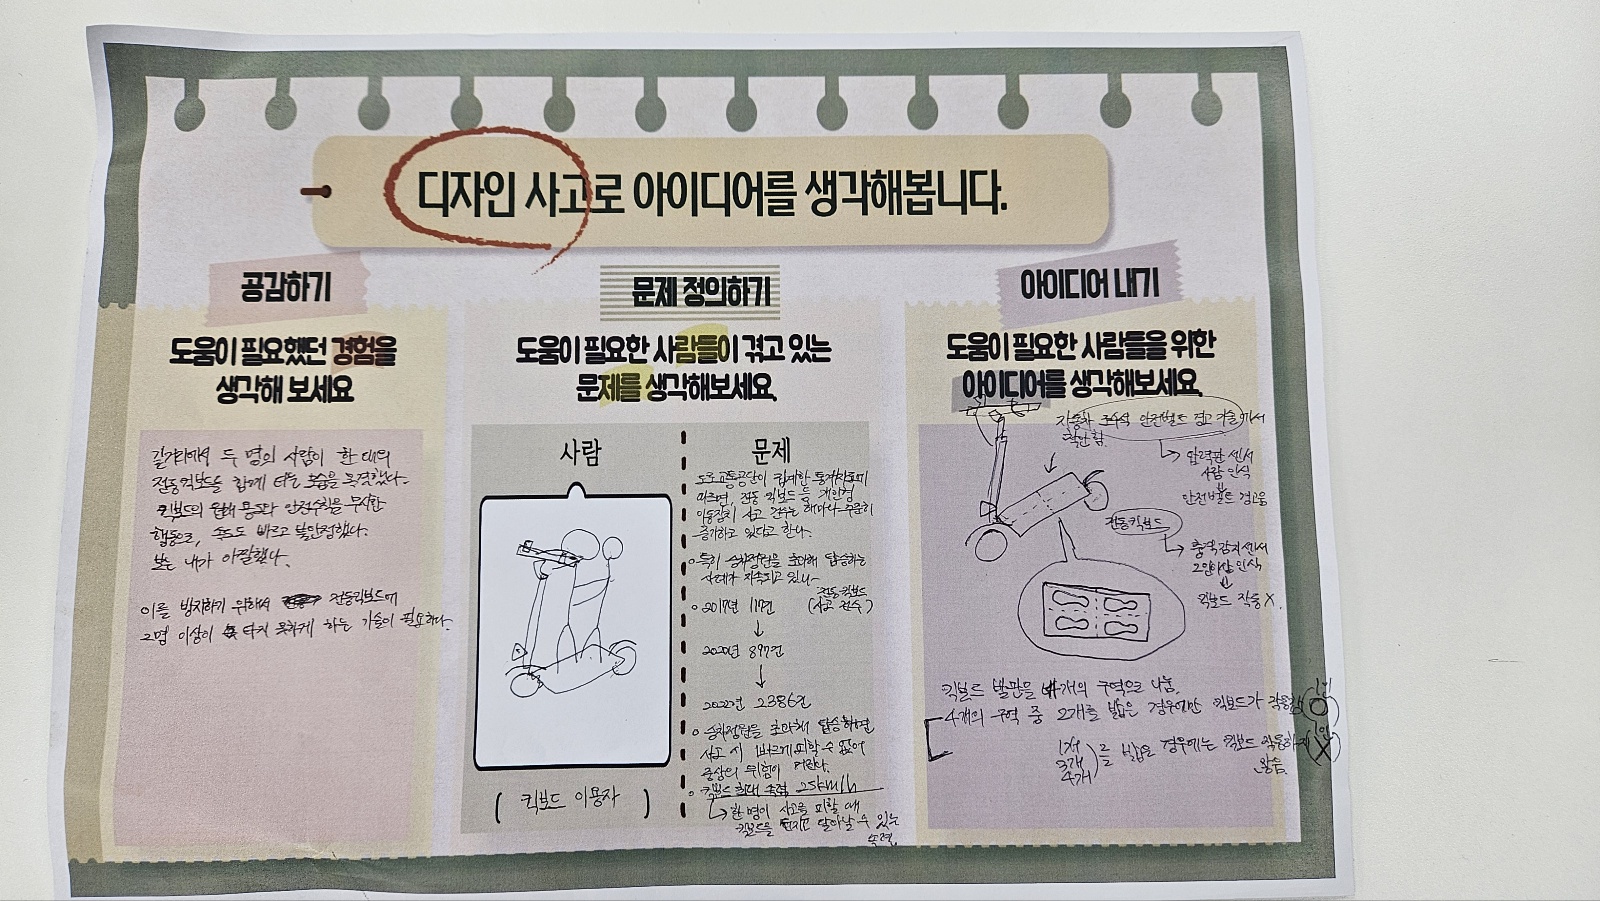 디자인 사고로 아이디어를 생각해봅니다.
공감하기
도움이 필요했던 경험을
생각해 보세요
길거리에서 두 명의 사람이 한 대의
전동킥보드를 함께 타는 모습을 목격했다.
킥보드의 원래 용도와 안전수칙을 무시한
행동으로, 속도도 빠르고 불안정했다.
보는 내가 아찔했다.
이를 방지하기 위해서 전동킥보드에
2명 이상이 타지 못하게 하는 기술이 필요하다.
문제 정의하기
도움이 필요한 사람들이 겪고 있는
문제를 생각해보세요.
사람
( 킥보드 이용자 )
문제
도로교통공단이 집계한 통계자료에
따르면, 전동 킥보드 등 개인형
이동장치 사고 건수는 해마다 꾸준히
증가하고 있다고 한다.
특히 승차정원을 초과해 탑승하는
사례가 지속되고 있다.
2017년 117건
전동킥보드
(사고 건수)
↓
2020년 897건
↓
2022년 2386건
승차정원을 초과해 탑승하면
사고 시 빠르게 피할 수 없어
중상의 위험이 커진다.
킥보드 최대 속력 25km/h
한 명이 사고를 피할 때
킥보드를 던지고 달아날 수 있는
속력
아이디어 내기
도움이 필요한 사람들을 위한
아이디어를 생각해보세요.
자동차 조수석 안전벨트 경고 기술에서
착안함
압력판 센서
사람 인식
안전벨트 경고음
전동킥보드
충격감지센서
2인이상 인식
킥보드 작동 X.
킥보드 발판을 4개의 구역으로 나눔.
4개의 구역 중 2개를 밟은 경우에만 킥보드가 작동함
1인
1개
3개
4개
를 밟은 경우에는 킥보드 작동하지
않음.